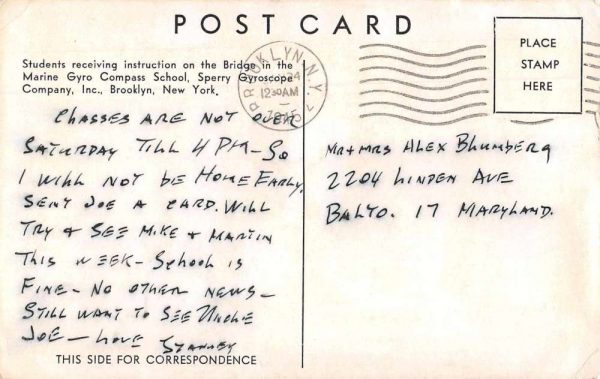 POST CARD
Students receiving instruction on the Bridge in the
Marine Gyro Compass School, Sperry Gyroscope
Company, Inc., Brooklyn, New York.
BROOKLYN, N.Y.
24
12 30 AM
1945
PLACE
STAMP
HERE
CLASSES ARE NOT OVER
SATURDAY TILL 4 PM - SO
I WILL NOT BE HOME EARLY.
SENT JOE A CARD. WILL
TRY & SEE MIKE & MARTIN
THIS WEEK - SCHOOL IS
FINE - NO OTHER NEWS -
STILL WANT TO SEE UNCLE
JOE - LOVE STANLEY
MR + MRS ALEX BLUMBERG
2204 LINDEN AVE
BALTO. 17 MARYLAND.
THIS SIDE FOR CORRESPONDENCE